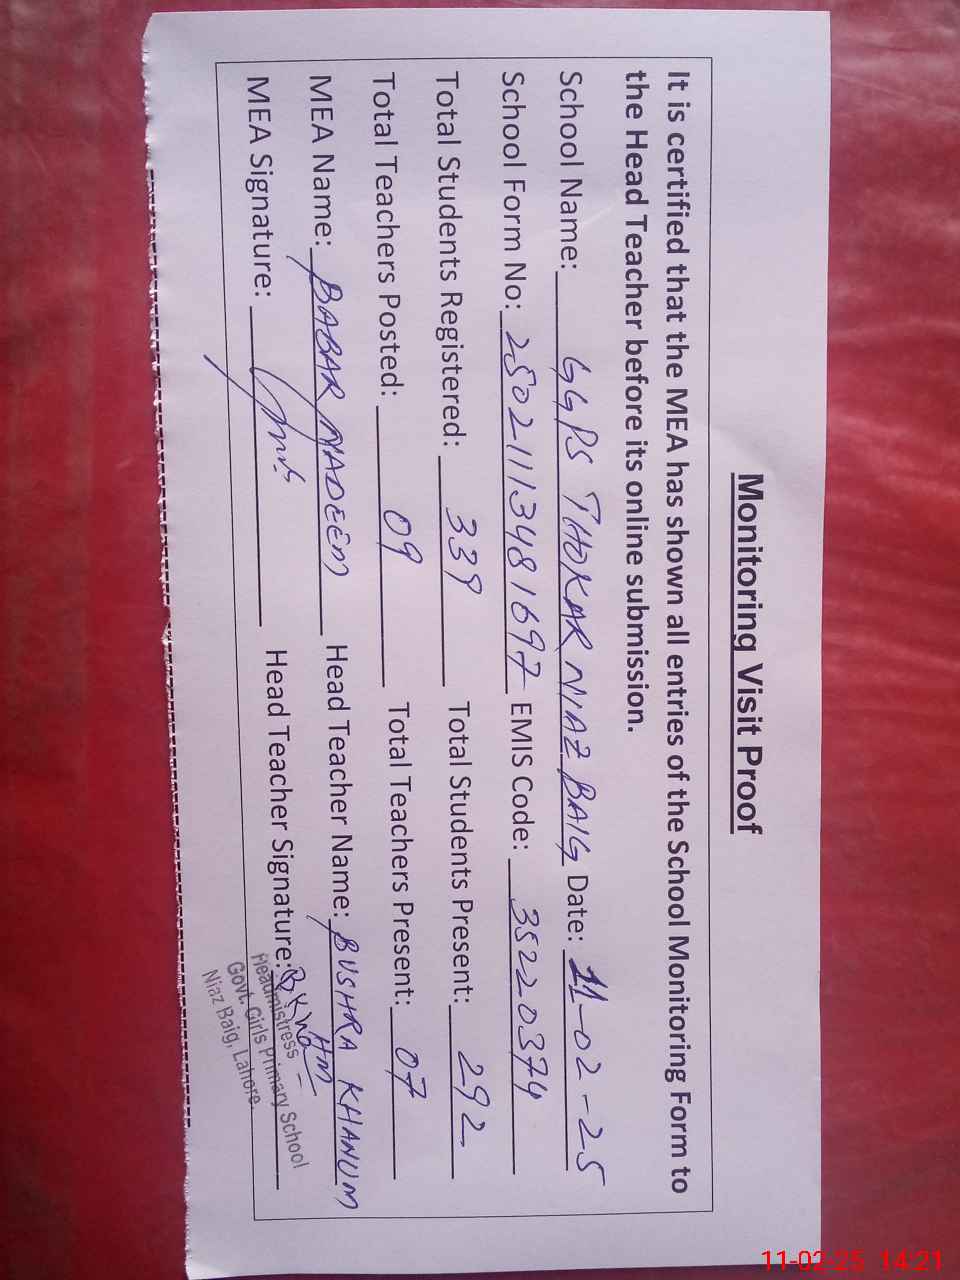 Monitoring Visit Proof
It is certified that the MEA has shown all entries of the School Monitoring Form to
the Head Teacher before its online submission.
School Name: GGPS THOKAR NIAZ BAIG Date: 11-02-25
School Form No: 25021113481697 EMIS Code: 35220374
Total Students Registered: 339 Total Students Present: 292
Total Teachers Posted: 09 Total Teachers Present: 07
MEA Name: BABAR NADEEM Head Teacher Name: BUSHRA KHANUM
MEA Signature: Head Teacher Signature: HM
Headmistress
Govt. Girls Primary School
Niaz Baig, Lahore.
11-02-25 14:21